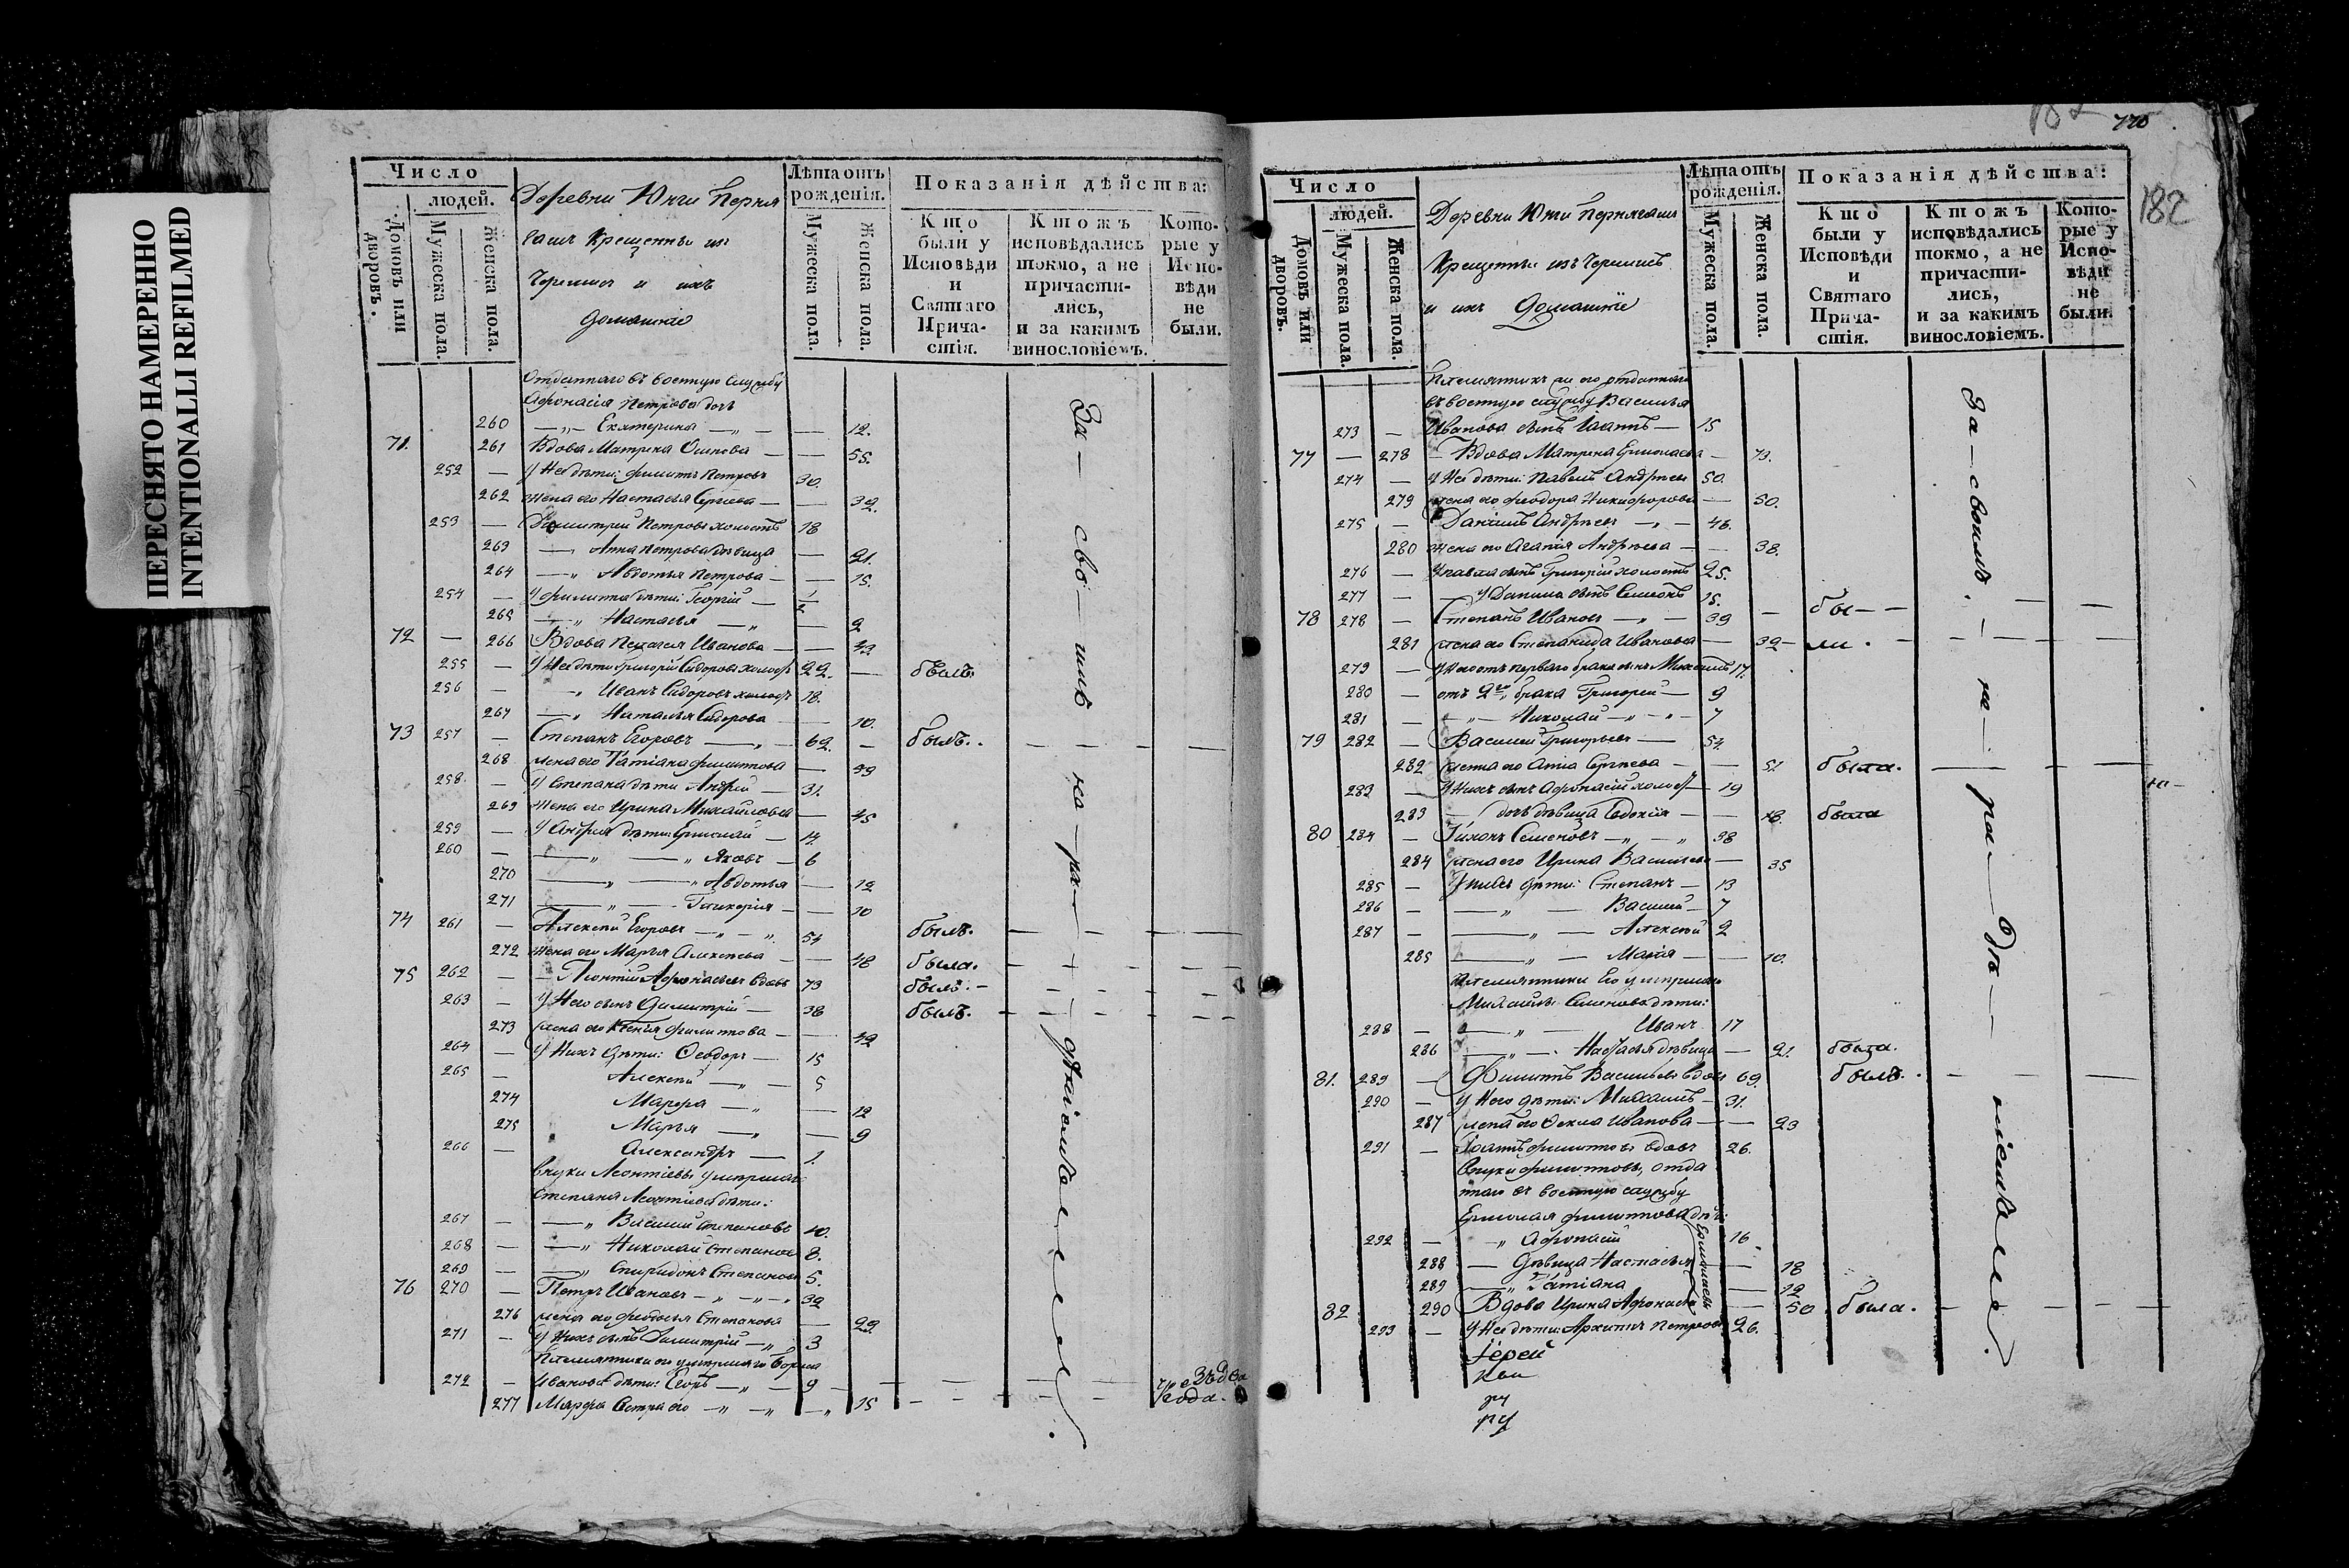 ПЕРЕСНЯТО НАМЕРЕННО
INTENTIONALLI REFILMED
Число
людей.
Домовъ или дворовъ.
Мужеска пола.
Женска пола.
Деревни Юнги Перня
гашъ Крещенныи изъ
Черемисъ и ихъ
домашніе
Лѣта отъ рожденія.
Мужеска пола.
Женска пола.
Показанія дѣйства:
Кто были у Исповѣди и Святаго Причастія.
Ктожъ исповѣдались токмо, а не причастились, и за какимъ винословіемъ.
Которые у Исповѣди не были.
Отданнаго въ военную службу
Афонасія Петрова дочь
260 —„— Екатерина —„— — 12.
71. 261 Вдова Матрена Осипова — — 55.
252 — У Нея дѣти: Филипъ Петровъ 30.
262 жена его Настасья Сергѣева — — 32.
253 — Димитрей Петровъ холостъ 18
263 — Анна Петрова дѣвица — 21.
264 —„ Авдотья Петрова — — 15.
254 — У Филипа дѣти: Георгій — 1/2
265 —„ Настасья —„ — 2
72 — 266 Вдова Пелагея Иванова — — 42
255 — У Нея дѣти Григорій Сидоровъ холостъ 22. — былъ.
256 — —„ Иванъ Сидоровъ холостъ 18.
267 —„ Наталья Сидорова — 10.
73 257 — Степанъ Егоровъ —„— 62. — былъ.
268 жена его Татіана Филипова — 59
258. — У Степана дѣти Андрей — 31.
269 жена его Ирина Михайлова — 45
259 — У Андрея дѣти: Ермолай — 14.
260 — —„ —„ Яковъ — 6
270 —„ —„ Авдотья — 12
271 —„ — Гликерія — — 10
74 261 — Алексѣй Егоровъ —„—„ 54 былъ.
272 жена его Марья Алексѣева — — 48 была.
75 262 — Леонтій Афонасьевъ вдовъ 73 былъ.
263 — У Него сынъ Димитрій — 38 былъ.
273 жена его Ксенія Филипова — — 42
264 — У Нихъ дѣти: Ѳеодоръ — 15
265 — Алексѣй —„— 5
274 Марфа —„ — 12
275 Марья —„ — 9
266 — Александръ — 1.
внуки Леонтіевы умершаго
Степана Леонтіева дѣти:
267 — —„ Василій Степановъ 10.
268 — —„ Николай Степановъ 8.
269 — —„ Спиридонъ Степановъ 5.
76 270 — Петръ Ивановъ —„—„— 32
276 жена его Федосья Степанова — 29.
271 — У Нихъ сынъ Димитрій —„ 3
Племянники его умершаго Бориса
272 — Иванова дѣти: Егоръ —„— 9
277 Марфа Сестра его —„—„ —„ 15
За — сво — имъ — на — ра — дѣніемъ.
Число
людей.
Домовъ или дворовъ.
Мужеска пола.
Женска пола.
Деревни Юнги Пернягашъ
Крещенныи изъ Черемисъ
и ихъ домашніе
Лѣта отъ рожденія.
Мужеска пола.
Женска пола.
Показанія дѣйства:
Кто были у Исповѣди и Святаго Причастія.
Ктожъ исповѣдались токмо, а не причастились, и за какимъ винословіемъ.
Которые у Исповѣди не были.
182
Племянникъ его отданнаго
въ военную службу Василья
273 — Иванова сынъ Иоаннъ — 15
77 — 278 — Вдова Матрена Ермолаева — 73.
274 — У Нея дѣти: Павелъ Андреевъ 50.
279 жена его Феодора Никифорова — 50.
275 — Данилъ Андреевъ —„— 46.
280 жена его Агапія Андреева — — 38.
276 — У павла сынъ Григорій холостъ 25.
277 — — У Данила сынъ Симеонъ 15.
78 278 — Степанъ Ивановъ —„— 39 — бы— —
281 жена его Степанида Иванова — 32 — ли.
279 — У Него отъ перваго брака сынъ Михаилъ 17.
280 — отъ 2го брака Григорей — 9
281 — —„— Николай —„—„— 7
79 282 — Василей Григорьевъ — 54.
282 жена его Анна Сергѣева — — 51 была.
283 — У Нихъ сынъ Афонасій холостъ — 19
283 — дочь дѣвица Евдокія — — 18. была
80 284 — Тихонъ Семеновъ —„—„ 38
284 жена его Ирина Васильева — 35
285 — У нихъ дѣти: Степанъ — 13
286 — —„ — Василій — 7
287 — —„ — Алексѣй 2
285 —„ — Марія — — 10.
племянники Его умершаго
Михайлы Семенова дѣти:
288 — —„ — Иванъ 17
286 —„—. Настасья дѣвица — 21. была.
81. 289 — Филипъ Васильевъ вдовъ 69. былъ.
290 — У Него дѣти: Михаилъ — 31.
287 жена его Фекла Иванова — — 23
291 — Іоаннъ Филиповъ вдовъ 26.
Внуки Филиповы, отда
ннаго въ военную службу
Ермолая Филипова дѣти:
292 — —„ Афонасій 16
288 — Дѣвица Настасья — 18
289 —„ Татіана — 12
Ермолаевы
82 290 Вдова Ирина Афонасьева — 50 была.
293 — У Нея дѣти: Архипъ Петровъ 26.
Іерей
За — своимъ — на — ра — дѣ — ніемъ.